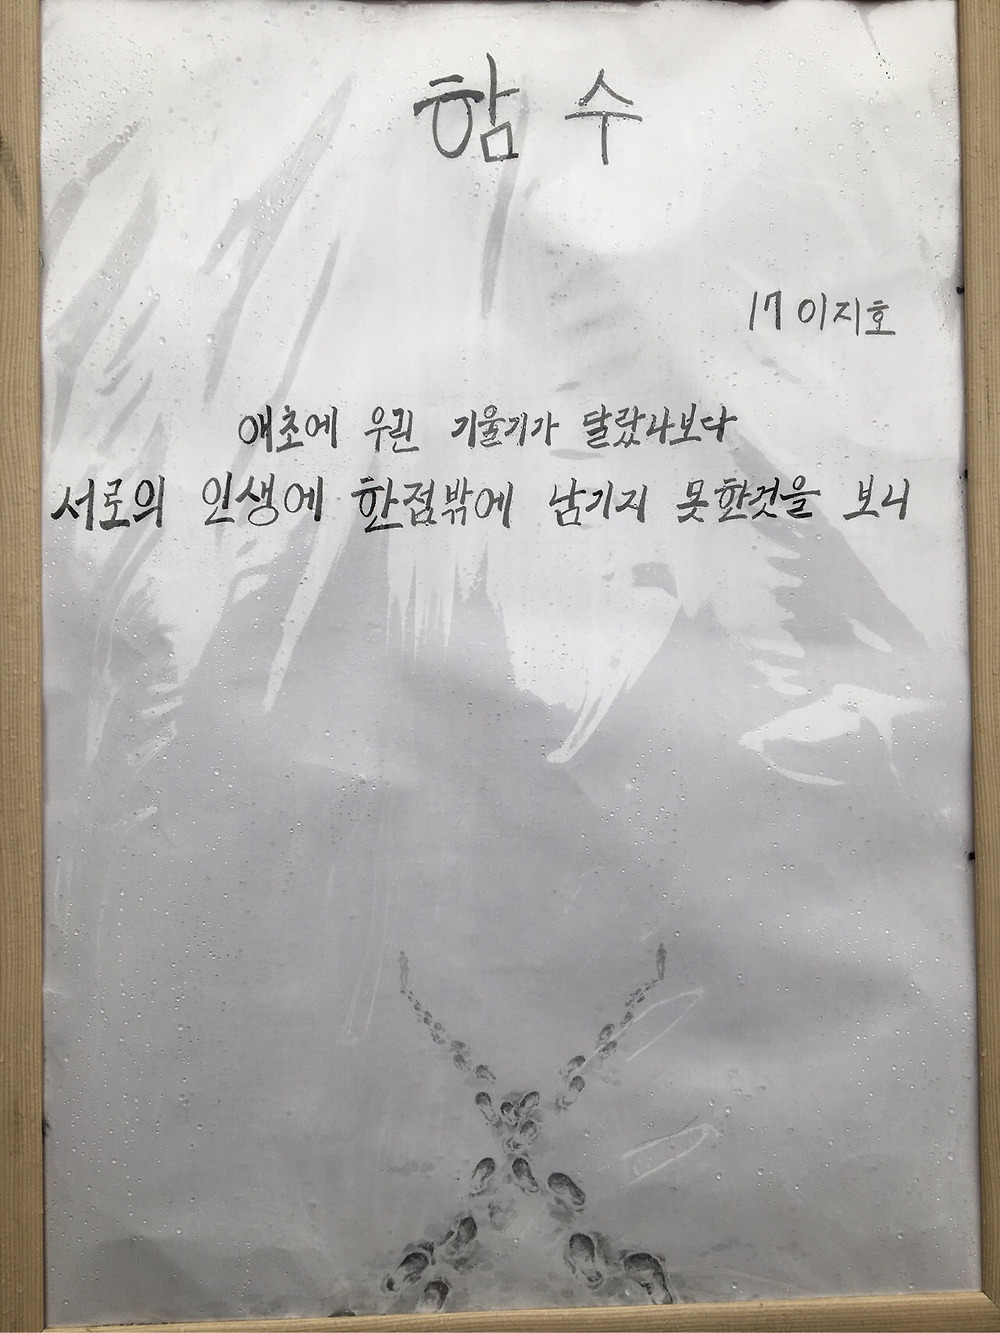 함수
17 이지호
애초에 우린 기울기가 달랐나보다
서로의 인생에 한점밖에 남기지 못한것을 보니